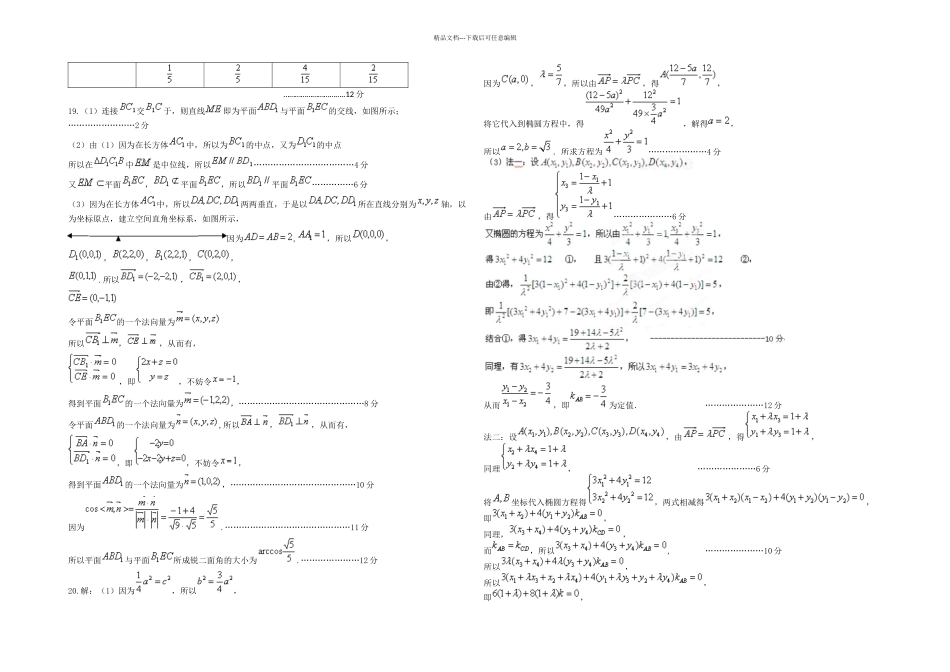 精品文档---下载后可任意编辑
1/5 2/5 4/15 2/15
…………………………12 分
19.(1)连接BC₁交B₁C于,则直线ME即为平面ABD₁与平面B₁EC的交线,如图所示;
……………………2 分
(2)由(1)因为在长方体AC₁中,所以为BC₁的中点,又为D₁C₁的中点
所以在ΔD₁C₁B中EM是中位线,所以EM // BD₁………………………………4 分
又EM ⊂平面B₁EC,BD₁ ⊄平面B₁EC,所以BD₁ //平面B₁EC……………6 分
(3)因为在长方体AC₁中,所以DA,DC,DD₁两两垂直,于是以DA,DC,DD₁所在直线分别为x,y,z轴,以
为坐标原点,建立空间直角坐标系,如图所示,
因为AD=AB=2,AA₁=1,所以D(0,0,0),
D₁(0,0,1),B(2,2,0),B₁(2,2,1),C(0,2,0),
E(0,1,1).所以BD₁=(-2,-2,1),CB₁=(2,0,1),
CE=(0,-1,1)
令平面B₁EC的一个法向量为m=(x,y,z)
所以CB₁⊥m,CE⊥m,从而有,
{CB₁·m=0 CE·m=0,即{2x+z=0 y=z,不妨令x=-1,
得到平面B₁EC的一个法向量为m=(-1,2,2),………………………………………8 分
令平面ABD₁的一个法向量为n=(x,y,z),所以BA⊥n,BD₁⊥n,从而有,
{BA·n=0 BD₁·n=0,即{-2y=0 -2x-2y+z=0,不妨令x=1,
得到平面ABD₁的一个法向量为n=(1,0,2),………………………………………10 分
因为cos<m,n>=m·n/|m||n|=(-1+4)/(√9·√5)=√5/5.………………………………………11 分
所以平面ABD₁与平面B₁EC所成锐二面角的大小为arccos √5/5.…………………12 分
20.解:(1)因为1/4 a²=c²,所以b²=3/4 a²,
因为C(a,0),λ=5/7,所以由AP=λPC,得A((12-5a)/7,12/7),
将它代入到椭圆方程中,得(12-5a)²/49a²+12²/(49×3/4 a²)=1,解得a=2,
所以a=2,b=√3.所求方程为x²/4+y²/3=1…………………4 分
(3)法一:设A(x₁,y₁),B(x₂,y₂),C(x₃,y₃),D(x₄,y₄),
由AP=λPC,得{x₃=(1-x₁)/λ+1 y₃=(1-y₁)/λ+1…………………6 分
得3x₁²+4y₁²=12 ①,且3((1-x₁)/λ+1)²+4((1-y₁)/λ+1)²=12 ②,
由②得,1/λ²[3(1-x₁)²+4(1-y₁)²]+2/λ[3(1-x₁)+4(1-y₁)]=5,
即1/λ²[(3x₁²+4y₁²)+7-2(3x₁+4y₁)]+2/λ[7-(3x₁+4y₁)]=5,
结合①,得3x₁+4y₁=(19+14λ-5λ²)/(2λ+2),----------------------------10 分
同理,有3x₂+4y₂=(19+14λ-5λ²)/(2λ+2),所以3x₁+4y₁=3x₂+4y₂,
从而(y₁-y₂)/(x₁-x₂)=-3/4,即k_AB=-3/4为定值.…………………12 分
法二:设A(x₁,y₁),B(x₂,y₂),C(x₃,y₃),D(x₄,y₄),由AP=λPC,得{x₁+λx₃=1+λ y₁+λy₃=1+λ,
同理{x₂+λx₄=1+λ y₂+λy₄=1+λ,…………………6 分
将A,B坐标代入椭圆方程得{3x₁²+4y₁²=12 3x₂²+4y₂²=12,两式相减得3(x₁+x₂)(x₁-x₂)+4(y₁+y₂)(y₁-y₂)=0,
即3(x₁+x₂)+4(y₁+y₂)k_AB=0,
同理,3(x₃+x₄)+4(y₃+y₄)k_CD=0,
而k_AB=k_CD,所以3(x₃+x₄)+4(y₃+y₄)k_AB=0,…………………10 分
所以3λ(x₃+x₄)+4λ(y₃+y₄)k_AB=0,
所以3(x₁+λx₃+x₂+λx₄)+4(y₁+λy₃+y₂+λy₄)k_AB=0,
即6(1+λ)+8(1+λ)k=0,